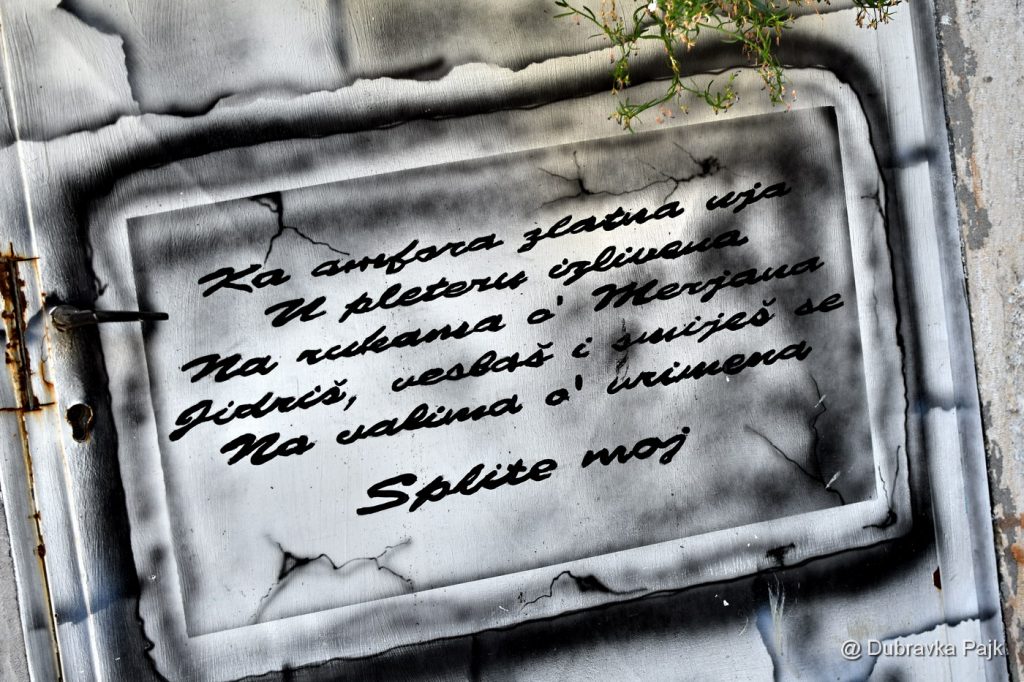 Ka amfora zlatna uja
U pleteru izlivena
Na rukama o' Merjana
Jidriš, vesloš i smiješ se
Na valima o' vrimena
Splite moj
@ Dubravka Pajk